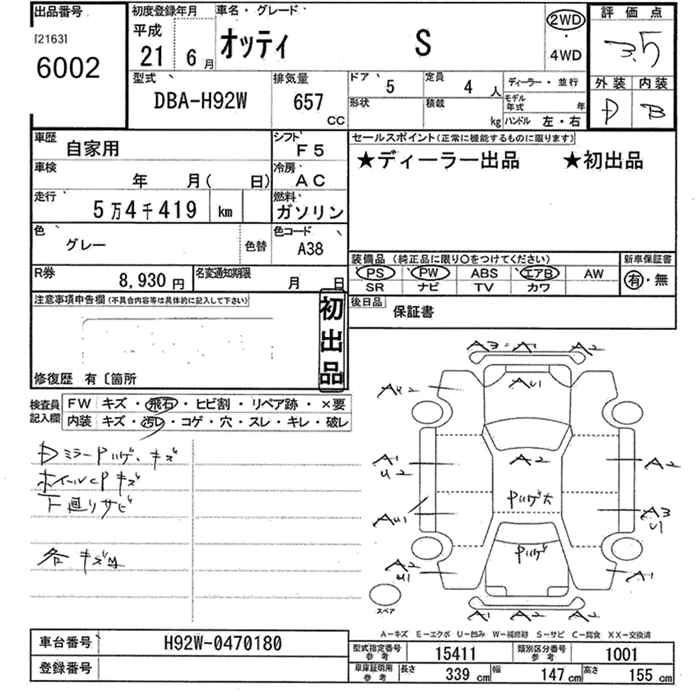 出品番号
[2163]
6002
初度登録年月
平成
21年 6月
車名・グレード
オッティ S
2WD
・
4WD
評価点
3.5
外装 内装
D B
型式
DBA-H92W
排気量
657
CC
ドア 5
定員 4 人
形状
積載 kg
ディーラー・並行
モデル年式 年
ハンドル 左・右
車歴
自家用
シフト
F5
車検
年 月( 日)
冷房
AC
走行
5万4千419 km
燃料
ガソリン
色
グレー
色替
色コード
A38
R券
8,930円
名変通知期限
月 日
セールスポイント(正常に機能するものに限ります)
★ディーラー出品 ★初出品
装備品(純正品に限り○をつけてください)
新車保証書
PS PW ABS エアB AW
有・無
SR ナビ TV カワ
後日品
保証書
注意事項申告欄(不具合内容等は具体的に記入して下さい)
初出品
修復歴 有〔箇所
検査員記入欄
FW キズ・飛石・ヒビ割・リペア跡・×要
内装 キズ・汚レ・コゲ・穴・スレ・キレ・破レ
DミラーPハゲ、キズ
ホイールCPキズ
下廻りサビ
各キズ
A3 A1 A2
AU2
AU1
A1
U2
A2
A2
AU1
Pハゲ大
A3
U1
A2
U1
Pハゲ
A1
スペア
A1 A2 A2
A-キズ E-エクボ U-凹み W-補修跡 S-サビ C-腐食 XX-交換済
車台番号
H92W-0470180
登録番号
型式指定番号 参考
15411
類別区分番号 参考
1001
車庫証明用 参考
長さ 339 cm
幅 147 cm
高さ 155 cm